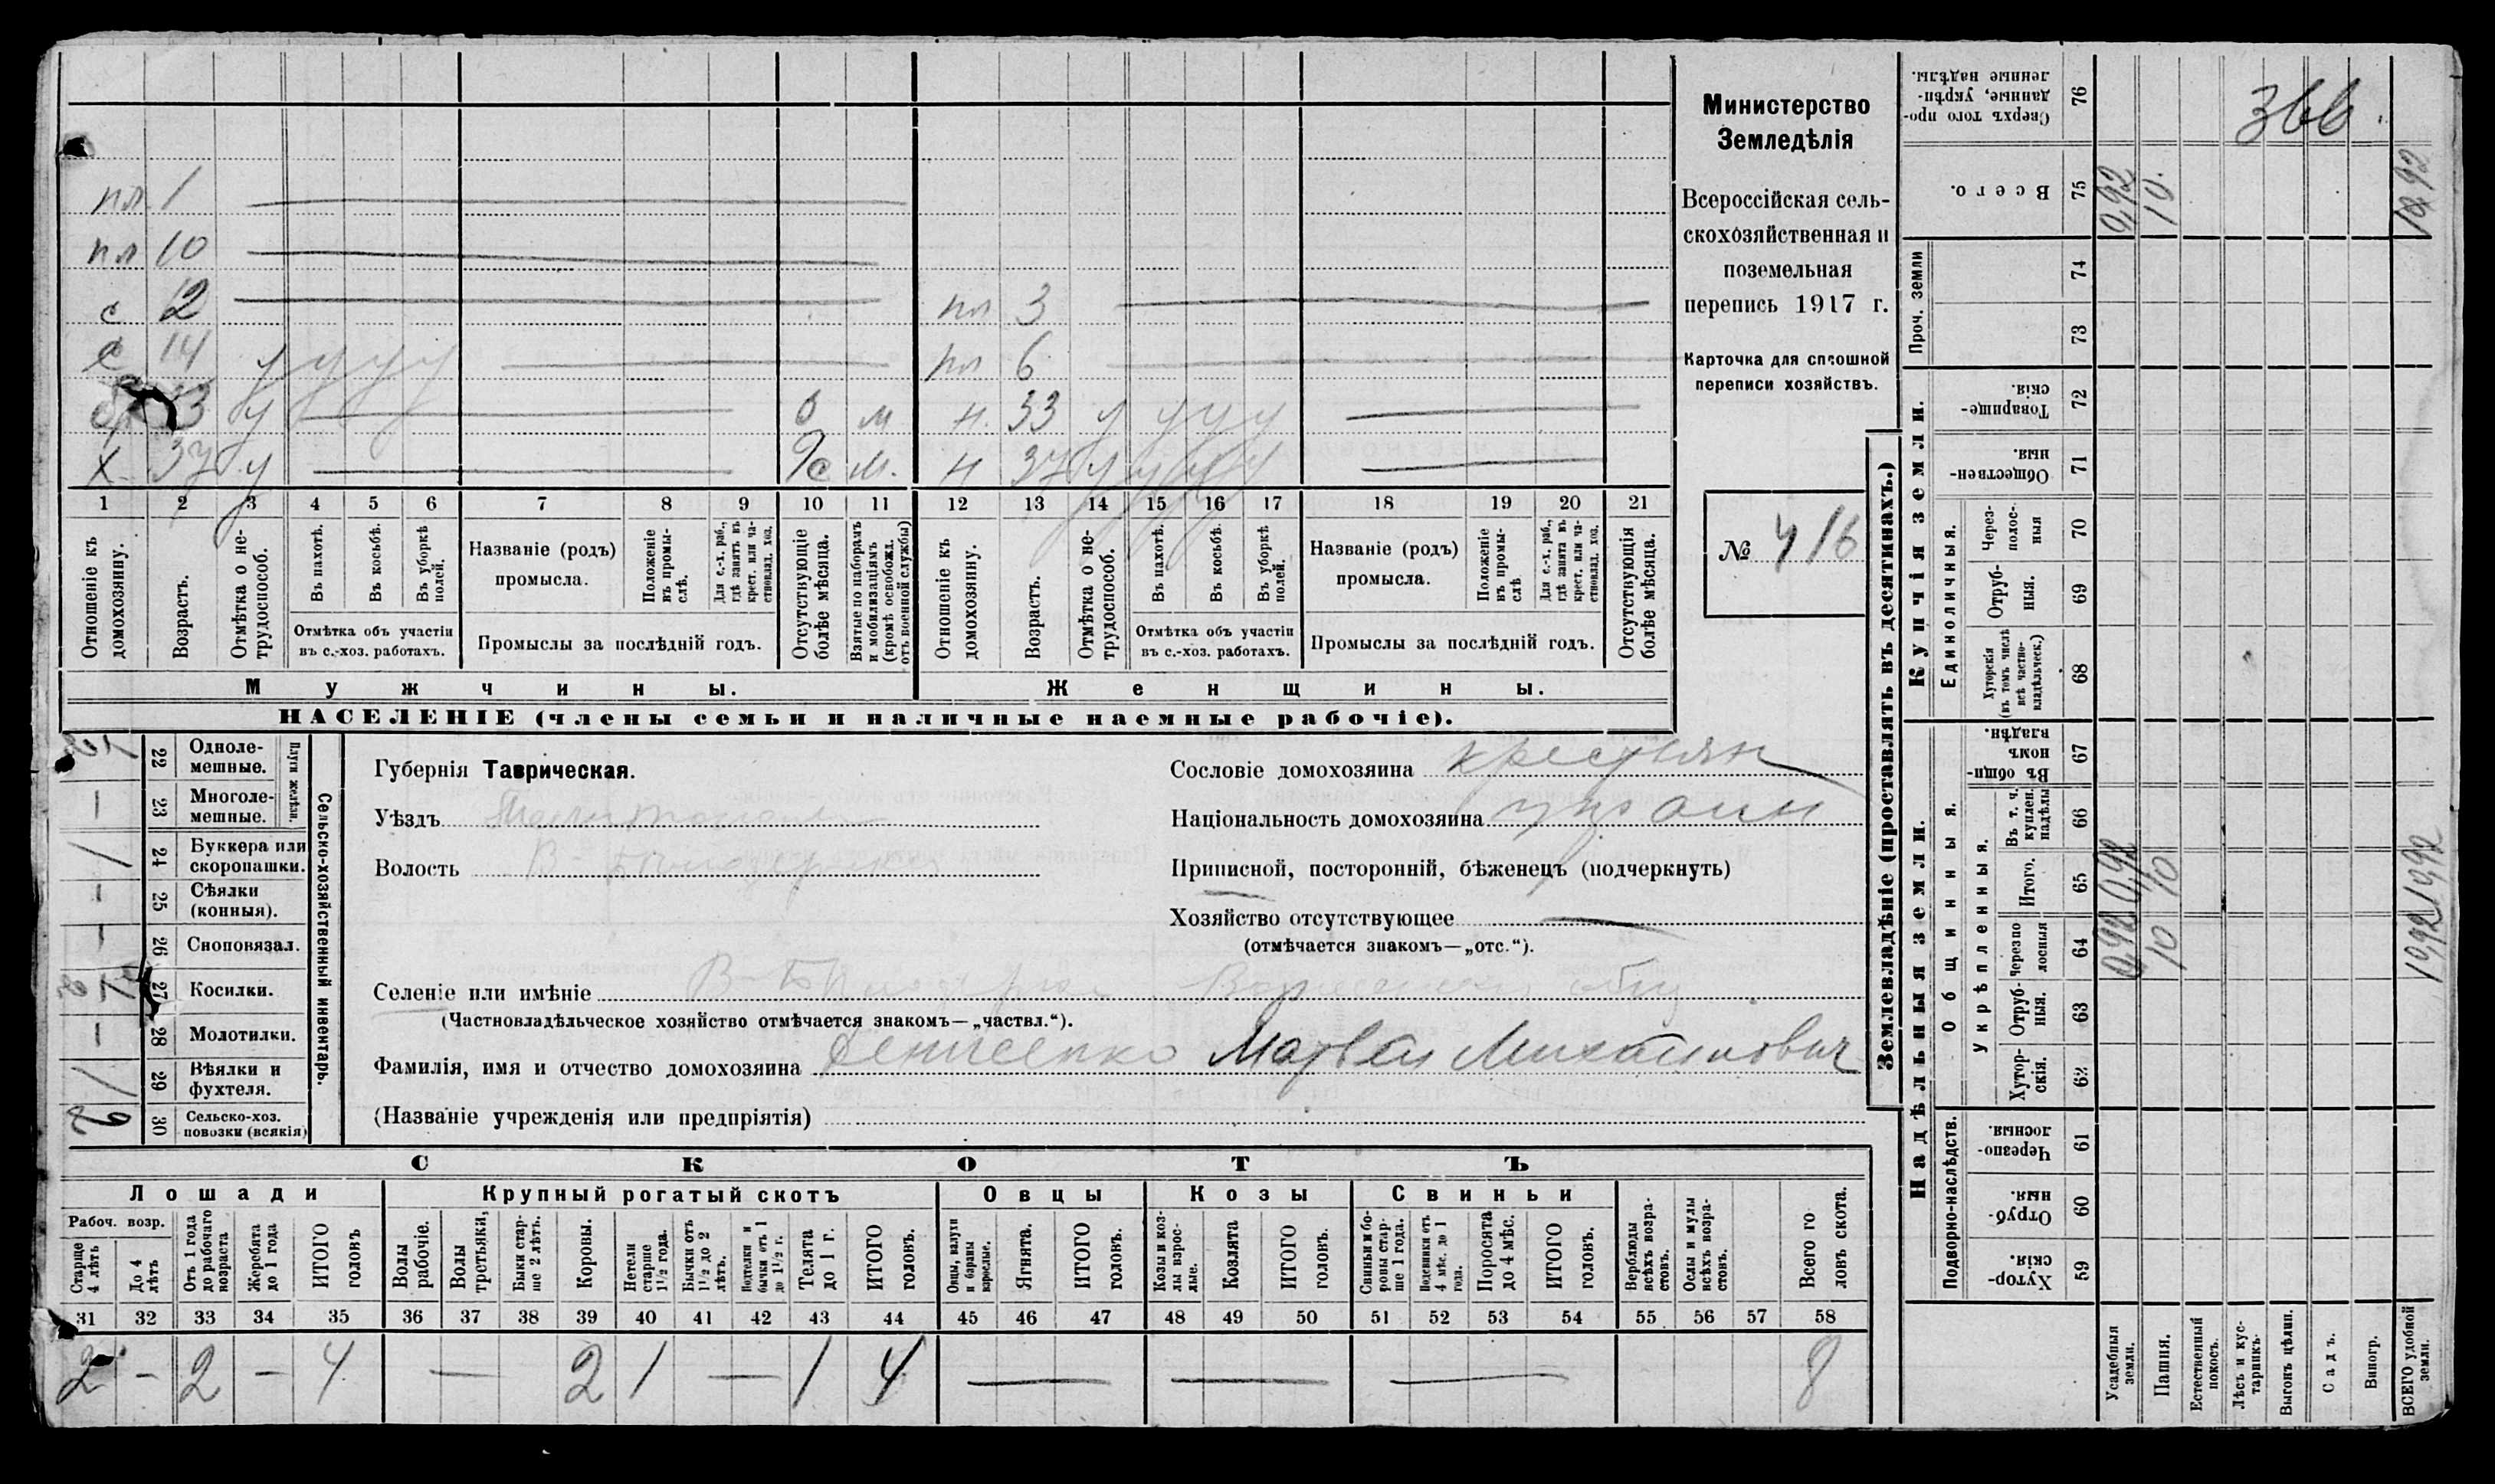 Министерство
Земледѣлія
Всероссійская сель-
скохозяйственная и
поземельная
перепись 1917 г.
Карточка для сплошной
переписи хозяйствъ.
№ 416
пл 1
пл 10
с 12 пл 3
с 14 у у у у пл 6
33 у 0 м н. 33 у у у у
х 37 у м. н 37 у у у у
1 2 3 4 5 6 7 8 9 10 11 12 13 14 15 16 17 18 19 20 21
Отношеніе къ домохозяину.
Возрастъ.
Отмѣтка о не-трудоспособ.
Въ пахотѣ.
Въ косьбѣ.
Въ уборкѣ полей.
Отмѣтка объ участіи
въ с.-хоз. работахъ.
Названіе (родъ)
промысла.
Положеніе въ промы-слѣ.
Для с.-х. раб., гдѣ занятъ въ крест. или ча-стновлад. хоз.
Промыслы за послѣдній годъ.
Отсутствующіе болѣе мѣсяца.
Взятые по наборамъ и мобилизаціямъ (кромѣ освобожд. отъ военной службы)
Отношеніе къ домохозяину.
Возрастъ.
Отмѣтка о не-трудоспособ.
Въ пахотѣ.
Въ косьбѣ.
Въ уборкѣ полей.
Отмѣтка объ участіи
въ с.-хоз. работахъ.
Названіе (родъ)
промысла.
Положеніе въ промы-слѣ
Для с.-х. раб., гдѣ занята въ крест. или ча-стновлад. хоз.
Промыслы за послѣдній годъ.
Отсутствующія болѣе мѣсяца.
Мужчины.
Женщины.
НАСЕЛЕНІЕ (члены семьи и наличные наемные рабочіе).
Сельско-хозяйственный инвентарь.
Плуги желѣзн.
22 Одноле-мешные.
23 Многоле-мешные.
24 Буккера или скоропашки.
25 Сѣялки (конныя).
26 Сноповязал.
27 Косилки.
28 Молотилки.
29 Вѣялки и фухтеля.
30 Сельско-хоз. повозки (всякія)
Губернія Таврическая.
Уѣздъ
Волость В-
Сословіе домохозяина крестьян
Національность домохозяина
Приписной, посторонній, бѣженецъ (подчеркнуть)
Хозяйство отсутствующее
(отмѣчается знакомъ—„отс.“).
Селеніе или имѣніе В-
(Частновладѣльческое хозяйство отмѣчается знакомъ—„частвл.“).
Фамилія, имя и отчество домохозяина Денисенко Матвей Михайлович
(Названіе учрежденія или предпріятія)
СКОТЪ
Лошади
Крупный рогатый скотъ
Овцы
Козы
Свиньи
Рабоч. возр.
Старше 4 лѣтъ
До 4 лѣтъ
Отъ 1 года до рабочаго возраста
Жеребята до 1 года
ИТОГО головъ
Волы рабочіе.
Волы третьяки,
Быки стар-ше 2 лѣтъ.
Коровы.
Нетели старше 1 1/2 года.
Бычки отъ 1 1/2 до 2 лѣтъ.
Подтелки и бычки отъ 1 до 1 1/2 г.
Телята до 1 г.
ИТОГО головъ.
Овцы, валухи и бараны взрослые.
Ягнята.
ИТОГО головъ.
Козы и коз-лы взрос-лые.
Козлята
ИТОГО головъ.
Свиньи и бо-ровы стар-ше 1 года.
Подсвинки отъ 4 мѣс. до 1 года.
Поросята до 4 мѣс.
ИТОГО головъ.
Верблюды всѣхъ возра-стовъ.
Ослы и мулы всѣхъ возра-стовъ.
Всего го-ловъ скота.
31 32 33 34 35 36 37 38 39 40 41 42 43 44 45 46 47 48 49 50 51 52 53 54 55 56 57 58
2 – 2 – 4 — 2 1 — 1 4 — — — 8
Землевладѣніе (проставлять въ десятинахъ.)
Надѣльныя земли.
Купчія земли.
Проч. земли
Подворно-наслѣдств.
Общинныя.
Укрѣпленныя.
Единоличныя.
59 Хутор-скія.
60 Отруб-ныя.
61 Черезпо-лосныя.
62 Хутор-скія.
63 Отруб-ныя.
64 Черезпо лосныя
65 Итого.
66 Въ т. ч. куплен. надѣлы
67 Въ общи-номъ владѣн.
68 Хуторскія (въ томъ числѣ всѣ частно-владѣльческ.)
69 Отруб-ныя.
70 Через-полос-ныя
71 Обществен-ныя.
72 Товарище-скія.
73
74
75 Всего.
76 Сверхъ того про-данные, укрѣп-ленные надѣлы.
Усадебныя земли.
Пашня.
Естественный покосъ.
Лѣсъ и кус-тарникъ.
Выгонъ цѣлин.
Садъ.
Виногр.
ВСЕГО удобной земли.
0,92 0,92 0,92
10 10 10
1092 1092 1092